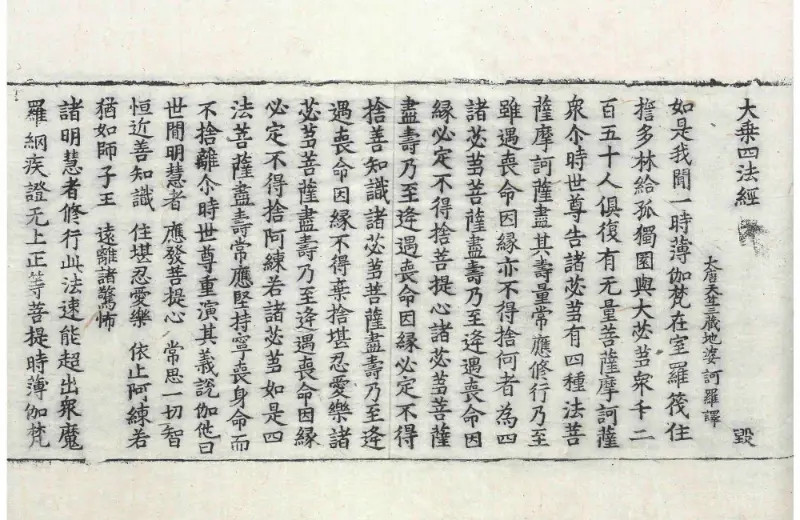 大乗四法經 毀
大唐天竺三藏地婆訶羅譯
如是我聞一時薄伽梵在室羅筏住
誓多林給孤獨園與大苾芻衆千二
百五十人俱復有无量菩薩摩訶薩
衆尒時世尊告諸苾芻有四種法菩
薩摩訶薩盡其壽量常應修行乃至
雖遇喪命因緣亦不得捨何者為四
諸苾芻菩薩盡壽乃至逢遇喪命因
緣必定不得捨菩提心諸苾芻菩薩
盡壽乃至逢遇喪命因緣必定不得
捨善知識諸苾芻菩薩盡壽乃至逢
遇喪命因緣不得棄捨堪忍愛樂諸
苾芻菩薩盡壽乃至逢遇喪命因緣
必定不得捨阿練若諸苾芻如是四
法菩薩盡壽常應堅持寧喪身命而
不捨離尒時世尊重演其義說伽他曰
世間明慧者 應發菩提心 常思一切智
恒近善知識 住堪忍愛樂 依止阿練若
猶如師子王 遠離諸驚怖
諸明慧者修行此法速能超出衆魔
羅網疾證无上正等菩提時薄伽梵